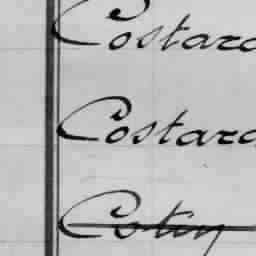 Costard
Costard
Cotin